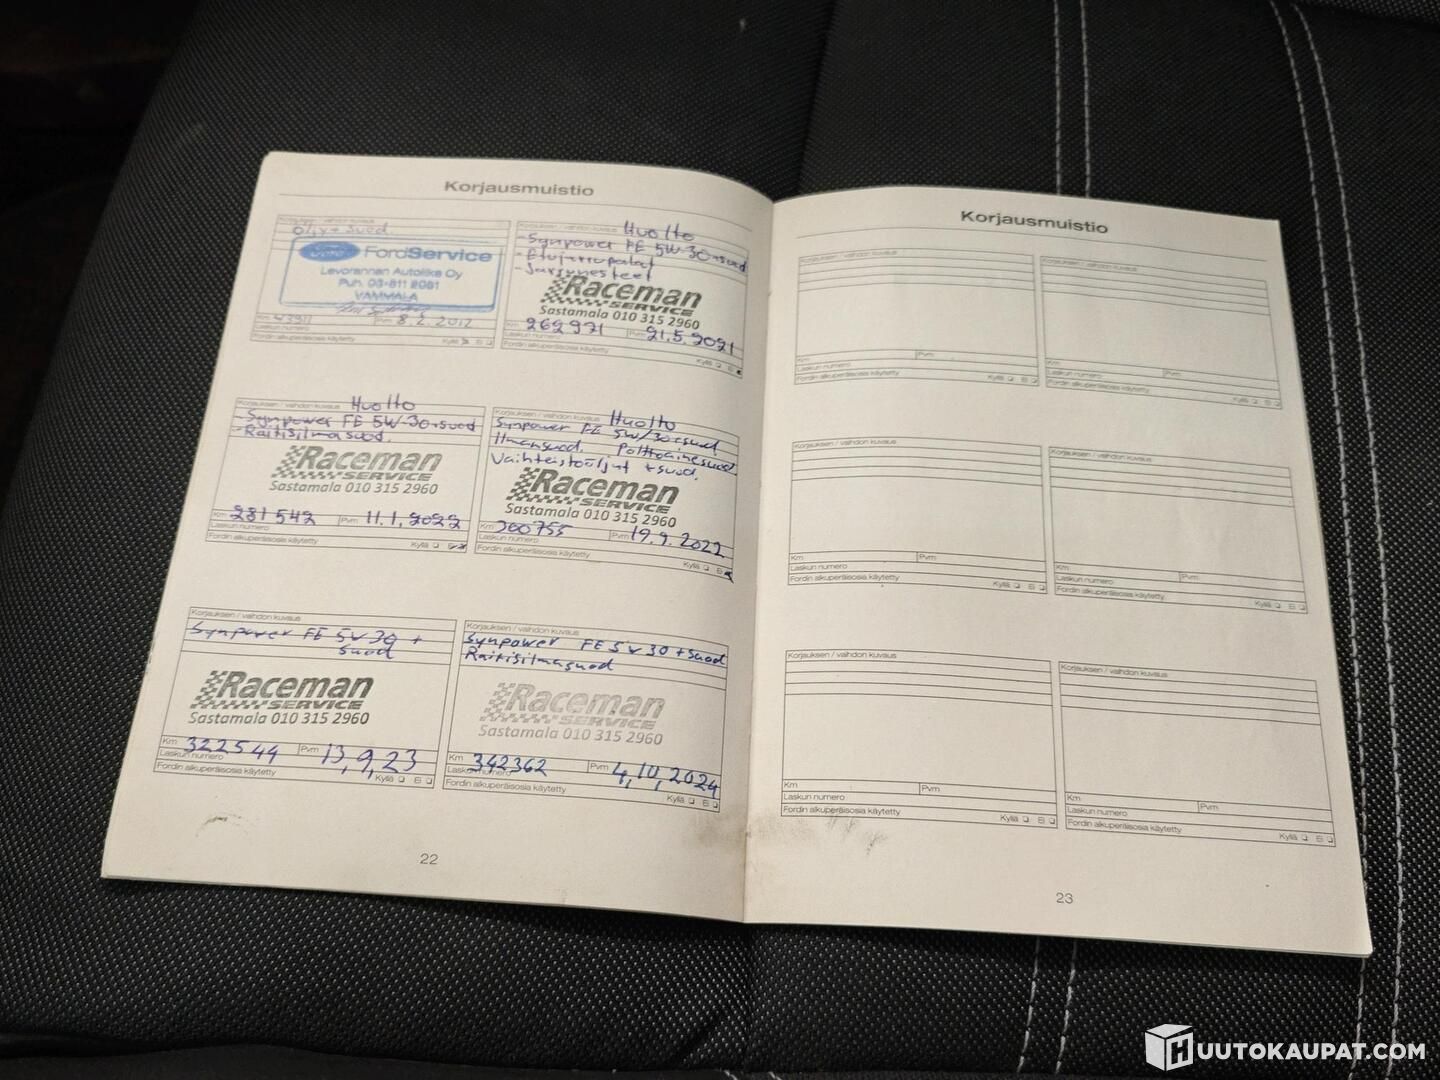 Korjausmuistio
Korjauksen / vaihdon kuvaus
Öljy + suod.
Ford FordService
Levorannan Autoliike Oy
Puh. 03-811 2081
VAMMALA
Km 43911 Pvm 8.2.2012
Laskun numero
Fordin alkuperäisosia käytetty Kyllä Ei
Korjauksen / vaihdon kuvaus Huolto
-Synpower FE 5W-30+suod
-Etujarrupalat
-Jarrunesteet
Raceman
SERVICE
Sastamala 010 315 2960
Km 262971 Pvm 21.5.2021
Laskun numero
Fordin alkuperäisosia käytetty Kyllä Ei
Korjauksen / vaihdon kuvaus Huolto
-Synpower FE 5W-30+suod
-Raitisilmasuod.
Raceman
SERVICE
Sastamala 010 315 2960
Km 281542 Pvm 11.1.2022
Laskun numero
Fordin alkuperäisosia käytetty Kyllä Ei
Korjauksen / vaihdon kuvaus Huolto
Synpower FE 5W/30+suod
Ilmansuod. Polttoainesuod.
Vaihteistoöljyt + suod.
Raceman
SERVICE
Sastamala 010 315 2960
Km 300755 Pvm 19.9.2022
Laskun numero
Fordin alkuperäisosia käytetty Kyllä Ei
Korjauksen / vaihdon kuvaus
Synpower FE 5W30 +
suod
Raceman
SERVICE
Sastamala 010 315 2960
Km 322544 Pvm 13,9,23
Laskun numero
Fordin alkuperäisosia käytetty Kyllä Ei
Korjauksen / vaihdon kuvaus
Synpower FE 5w30 +suod
Raitisilmasuod
Raceman
SERVICE
Sastamala 010 315 2960
Km 342362 Pvm 4,10,2024
Laskun numero
Fordin alkuperäisosia käytetty Kyllä Ei
22
Korjausmuistio
Korjauksen / vaihdon kuvaus
Km Pvm
Laskun numero
Fordin alkuperäisosia käytetty Kyllä Ei
Korjauksen / vaihdon kuvaus
Km Pvm
Laskun numero
Fordin alkuperäisosia käytetty Kyllä Ei
Korjauksen / vaihdon kuvaus
Km Pvm
Laskun numero
Fordin alkuperäisosia käytetty Kyllä Ei
Korjauksen / vaihdon kuvaus
Km Pvm
Laskun numero
Fordin alkuperäisosia käytetty Kyllä Ei
Korjauksen / vaihdon kuvaus
Km Pvm
Laskun numero
Fordin alkuperäisosia käytetty Kyllä Ei
Korjauksen / vaihdon kuvaus
Km Pvm
Laskun numero
Fordin alkuperäisosia käytetty Kyllä Ei
23
HUUTOKAUPAT.COM